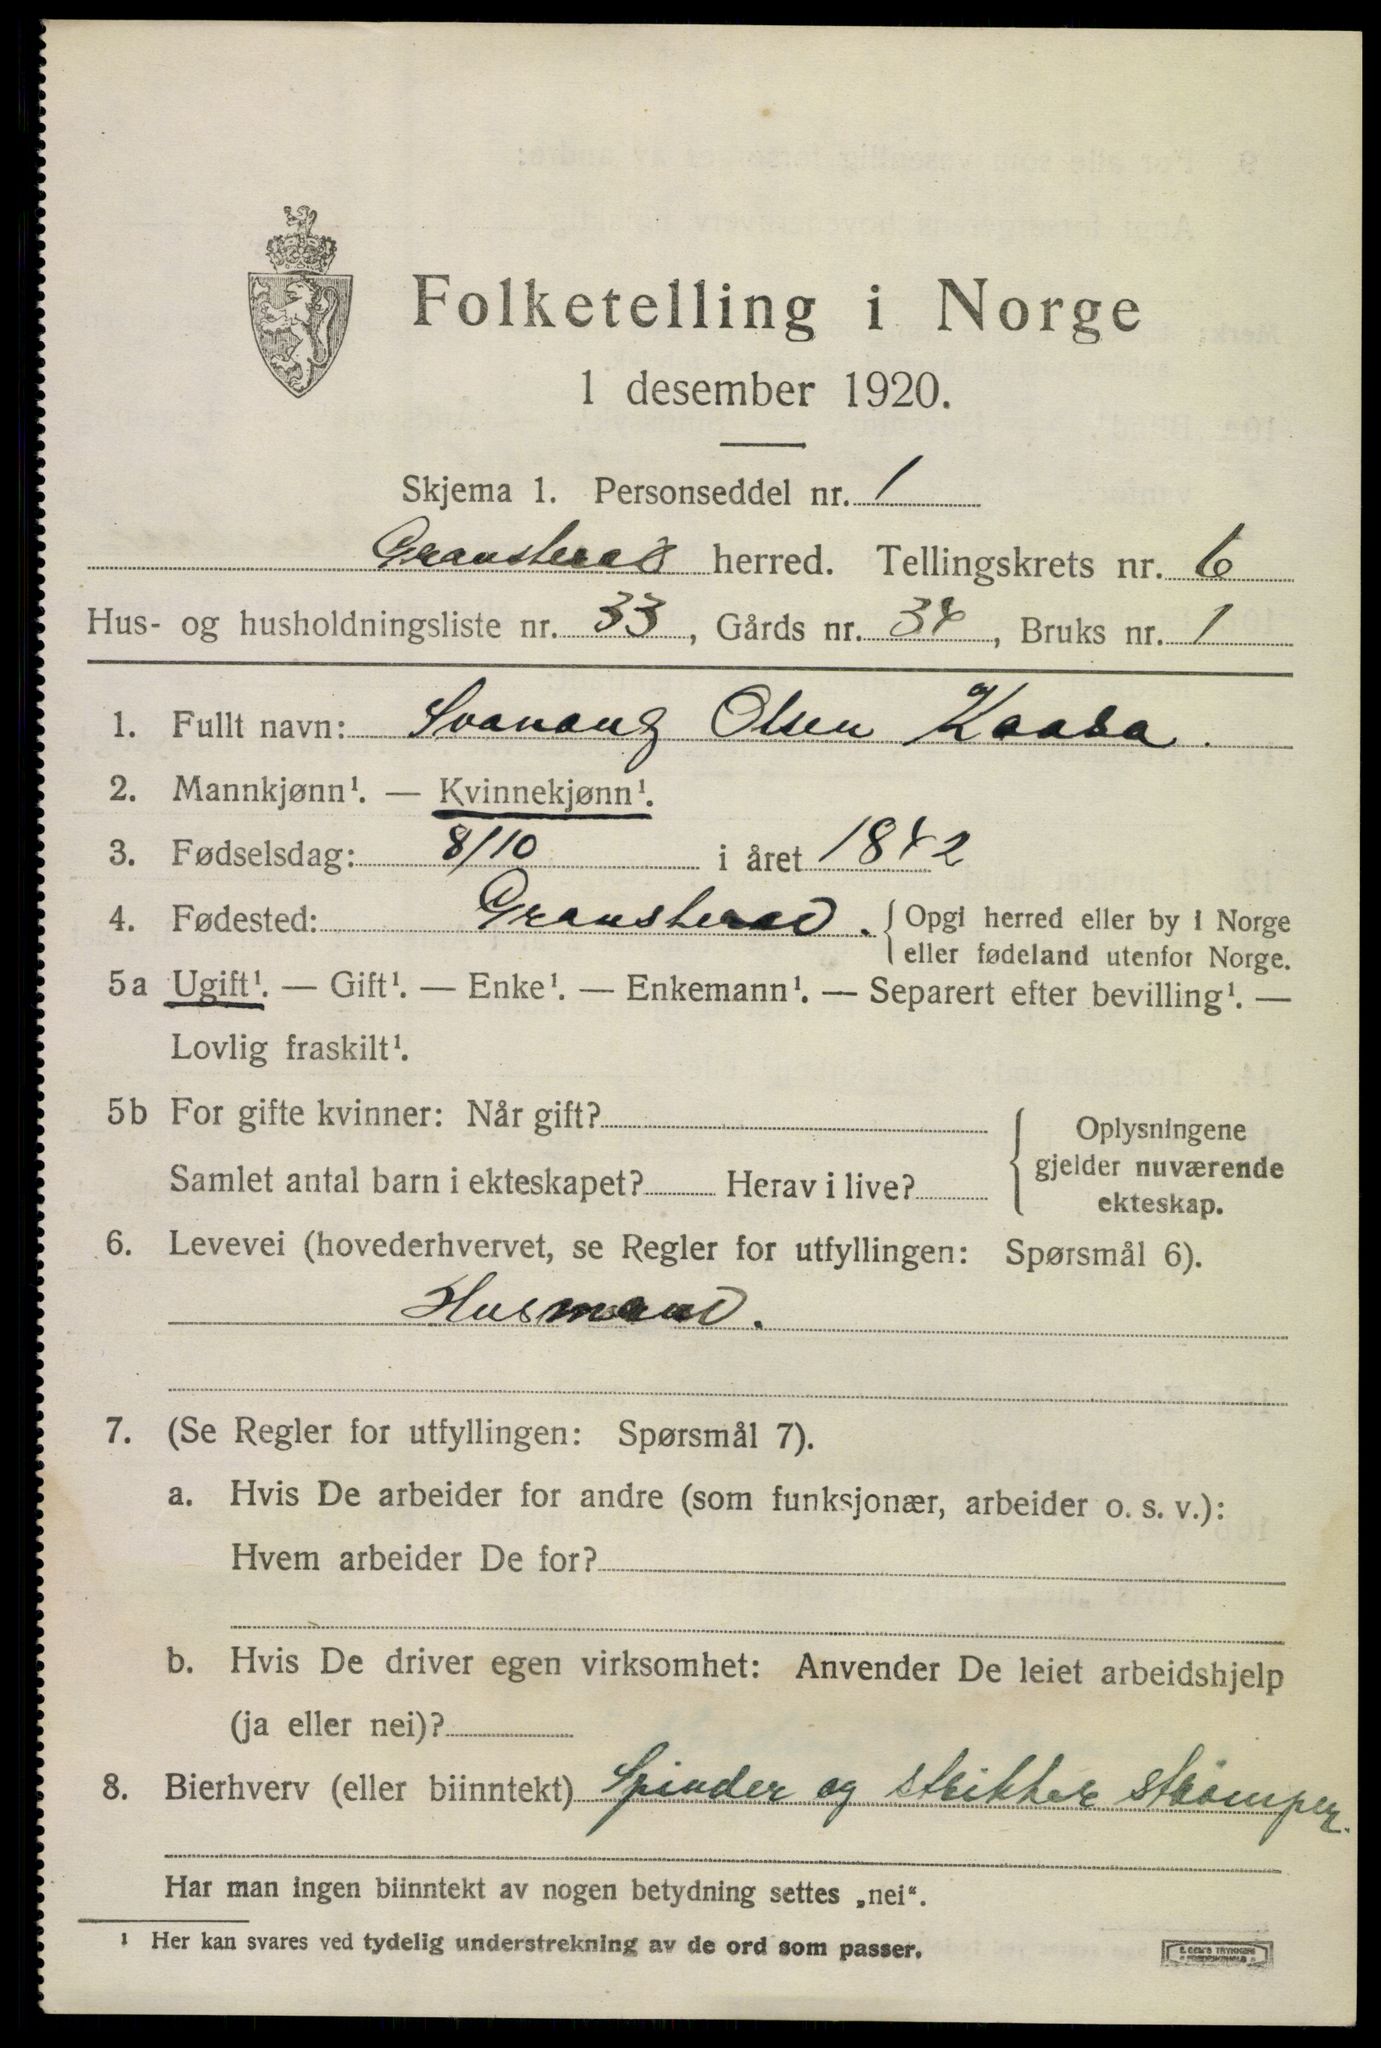 Folketelling i Norge
1 desember 1920.
Skjema 1. Personseddel nr. 1
Gransherad herred. Tellingskrets nr. 6
Hus- og husholdningsliste nr. 33, Gårds nr. 34, Bruks nr. 1
1. Fullt navn: Svanaug Olsen Kaasa.
2. Mannkjønn¹. — Kvinnekjønn¹.
3. Fødselsdag: 8/10 i året 1842
4. Fødested: Gransherad. { Opgi herred eller by i Norge
eller fødeland utenfor Norge.
5a Ugift¹. — Gift¹. — Enke¹. — Enkemann¹. — Separert efter bevilling¹. —
Lovlig fraskilt¹.
5b For gifte kvinner: Når gift?
Samlet antal barn i ekteskapet? Herav i live?
{ Oplysningene
gjelder nuværende
ekteskap.
6. Levevei (hovederhvervet, se Regler for utfyllingen: Spørsmål 6).
Husmand.
7. (Se Regler for utfyllingen: Spørsmål 7).
a. Hvis De arbeider for andre (som funksjonær, arbeider o. s. v.):
Hvem arbeider De for?
b. Hvis De driver egen virksomhet: Anvender De leiet arbeidshjelp
(ja eller nei)?
8. Bierhverv (eller biinntekt) Spinder og strikker strømper.
Har man ingen biinntekt av nogen betydning settes „nei“.
¹ Her kan svares ved tydelig understrekning av de ord som passer.